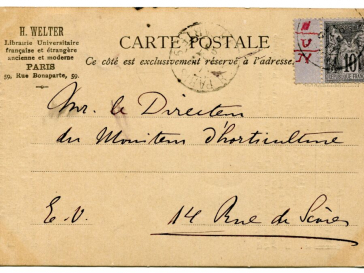 H. WELTER
Librairie Universitaire
française et étrangère
ancienne et moderne
PARIS
59, Rue Bonaparte, 59.
CARTE POSTALE
Ce côté est exclusivement réservé à l'adresse.
10
Mr. le Directeur
du Moniteur d'horticulture
E. V.
14 Rue de Sèvres